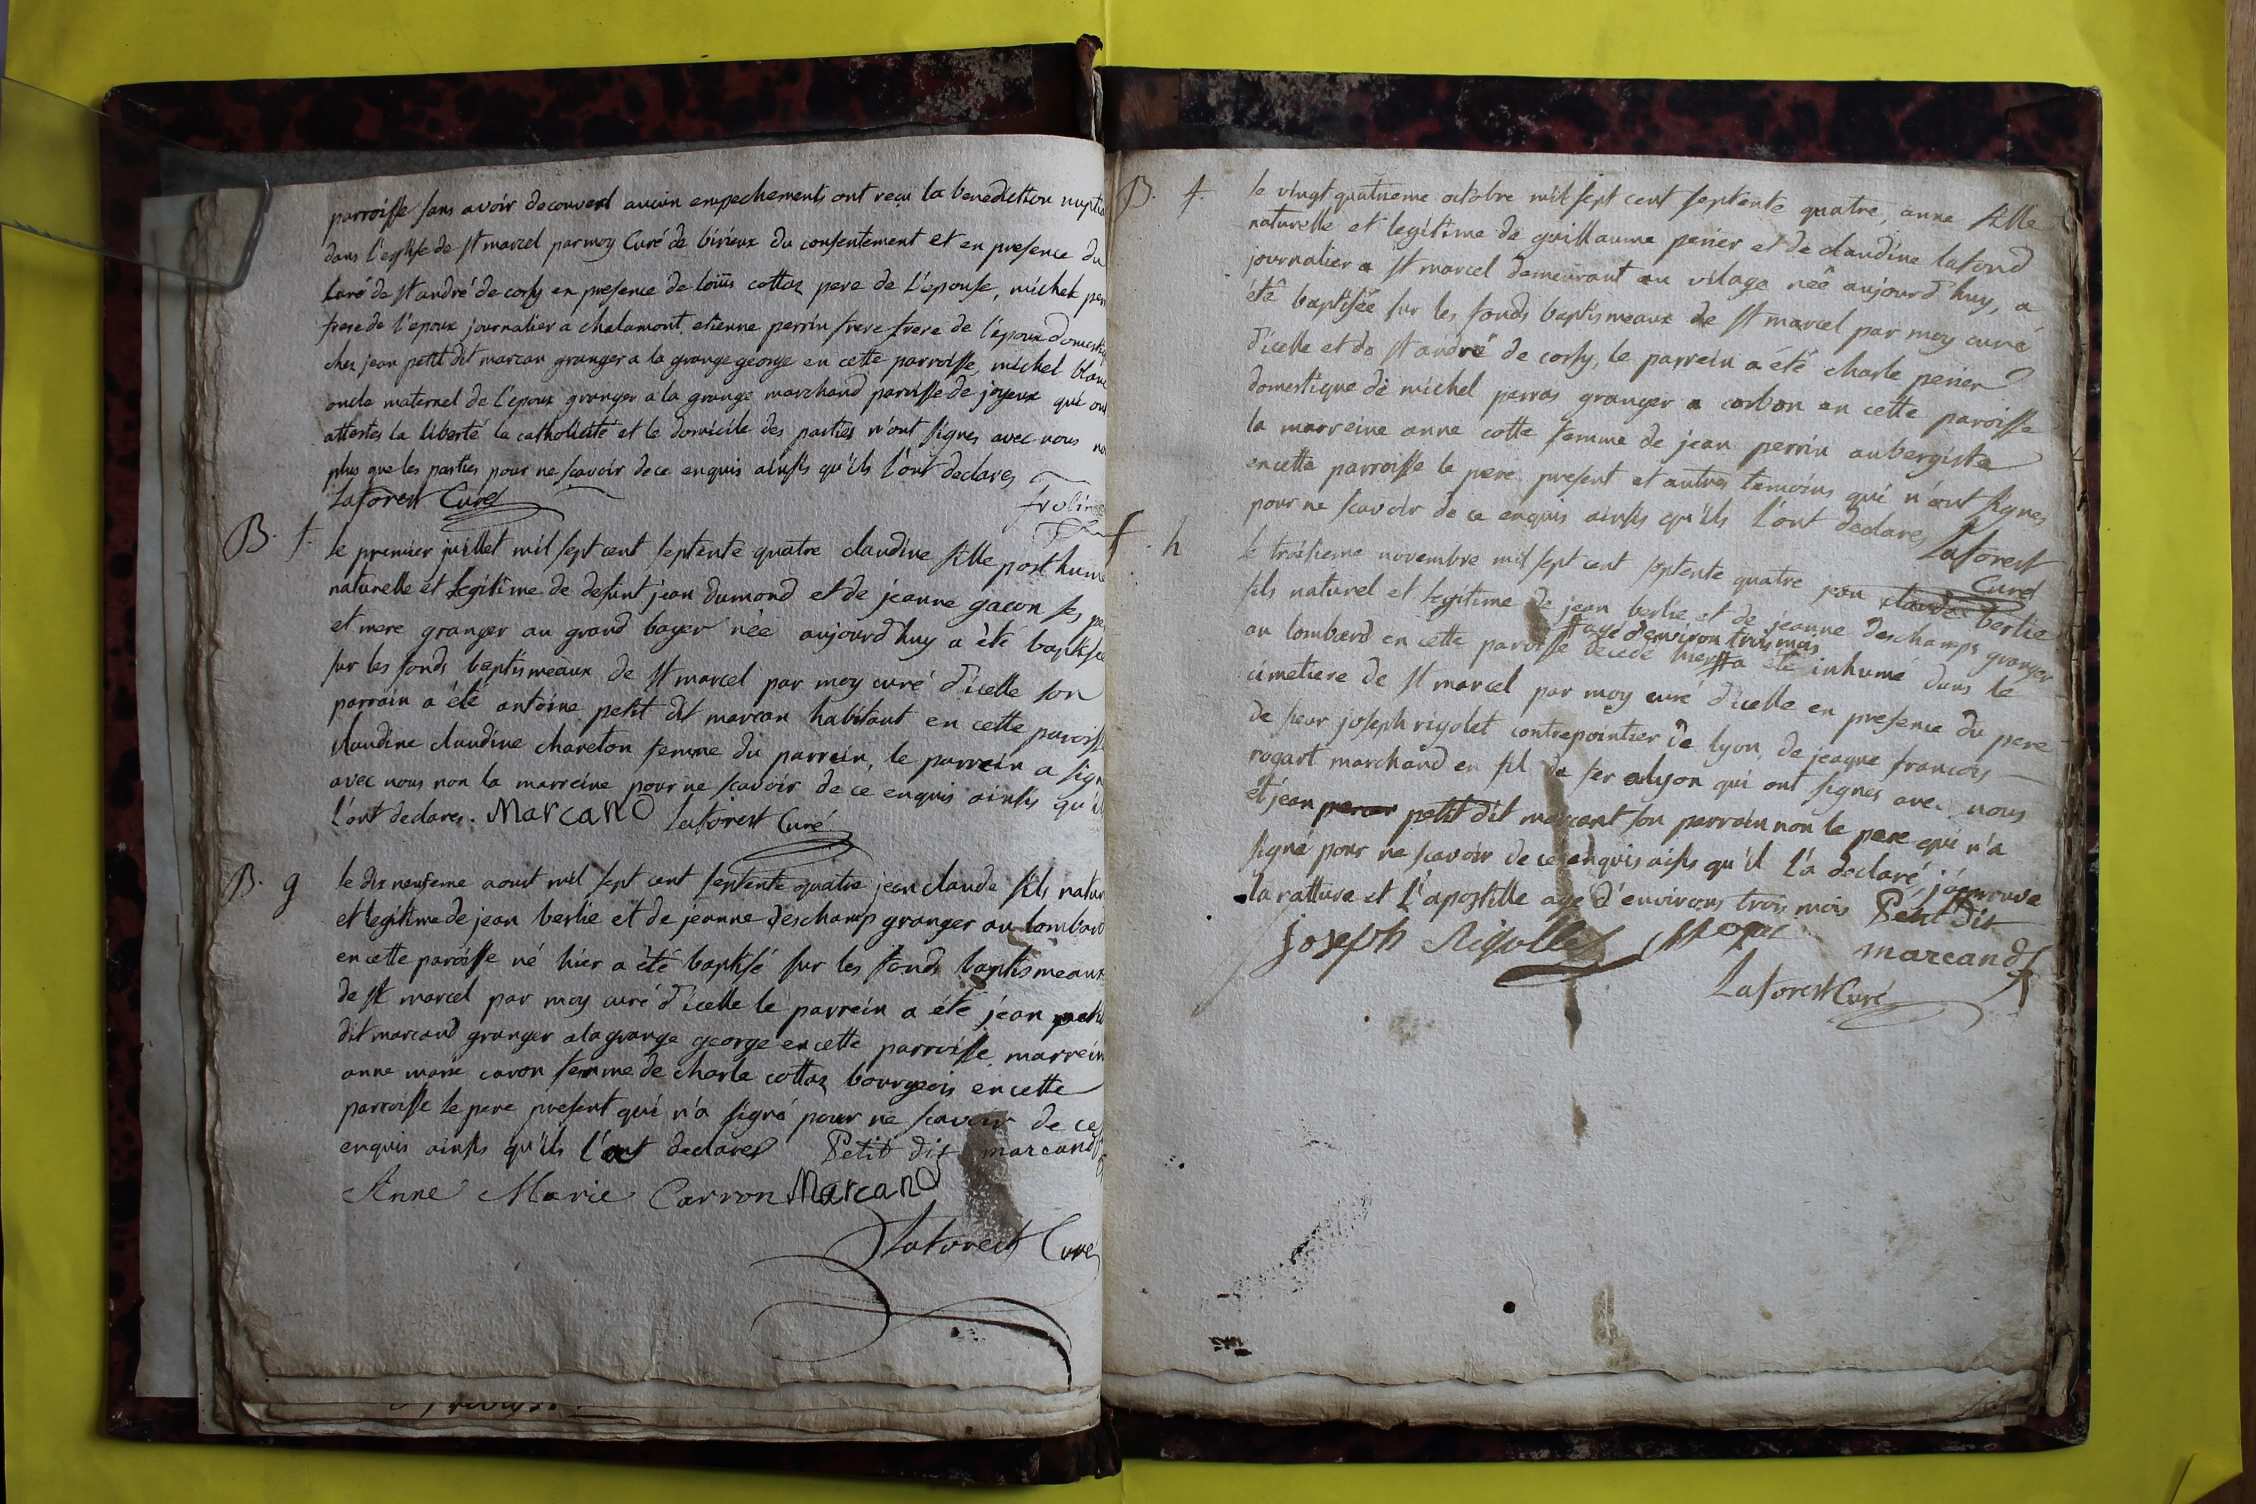 parroisse sans avoir decouvert aucun empechements ont reçu la benediction nuptia
dans l'eglise de st marcel par moy Curé de birieux du consentement et en presence du
Curé de st andré de corsy en presence de loüis cottaz pere de l'epouse, michel per
frere de l'epoux journalier a chalamont, etienne perrin frere frere de l'epoux domestiq
chez jean petit dit marcan granger a la grange george en cette parroisse, michel blanc
oncle maternel de l'epoux granger a la grange marchand paroisse de joyeux qui ont
attestes la liberté la catholicité et le domicile des parties n'ont signes avec nous no
plus que les parties pour ne scavoir de ce enquis ainsis qu'ils l'ont declares
Laforest Curé
B. f. le premier juillet mil sept cent septente quatre claudine fille posthume
naturelle et legitime de defunt jean dumond et de jeanne gacon ses pe
et mere granger au grand bayer née aujourd'huy a été baptisée
sur les fonds baptismeaux de st marcel par moy curé d'icelle son
parrain a été antoine petit dit marcan habitant en cette paroisse
claudine claudine chareton femme du parrein, le parrein a signé
avec nous non la marreine pour ne scavoir de ce enquis ainsis qu'il
l'ont declares. Marcand Laforest Curé
B. g le dix neufieme aoust mil sept cent septente quatre jean claude fils natur
et legitime de jean berlie et de jeanne deschamp granger au lombard
en cette paroisse né hier a été baptisé sur les fonds baptismeaux
de st marcel par moy curé d'icelle le parrein a été jean petit
dit marcand granger a la grange george en cette parroisse marrein
anne marie caron femme de charle cottaz bourgeois en cette
parroisse le pere present qui n'a signé pour ne scavoir de ce
enquis ainsis qu'ils l'ont declares Petit dit marcand
Anne Marie Carron Marcand
Laforest Curé
B. f. le vingt quatrieme octobre mil sept cent septente quatre, anne fille
naturelle et legitime de guillaume perier et de claudine lafond
journalier a st marcel demeurant au vilage née aujourd'huy, a
été baptisée sur les fonds baptismeaux de st marcel par moy curé
d'icelle et de st andré de corsy, le parrein a été charle perier
domestique de michel perras granger a corbon en cette paroisse
la marreine anne cotte femme de jean perrin aubergiste
en cette parroisse le pere present et autres temoins qui n'ont signes
pour ne scavoir de ce enquis ainsis qu'ils l'ont declares Laforest
Curé
f. h le troisieme novembre mil sept cent septente quatre jean claude berlie
fils naturel et legitime de jean berlie et de jeanne deschamps granger
agé d'environ trois mois
au lombard en cette paroisse decedé hier a été inhumé dans le
cimetiere de st marcel par moy curé d'icelle en presence du pere
de sieur joseph rigolet contrepointier de lyon, de jeaque francois
rogart marchand en fil de fer a lyon qui ont signes avec nous
et jean petit dit marcant son parrain non le pere qui n'a
signé pour ne scavoir de ce enquis aisis qu'il l'a declaré, j'approuve
la ratture et l'apostille agé d'environs trois mois Petit dit
joseph Rigollet marcand
Laforest Curé